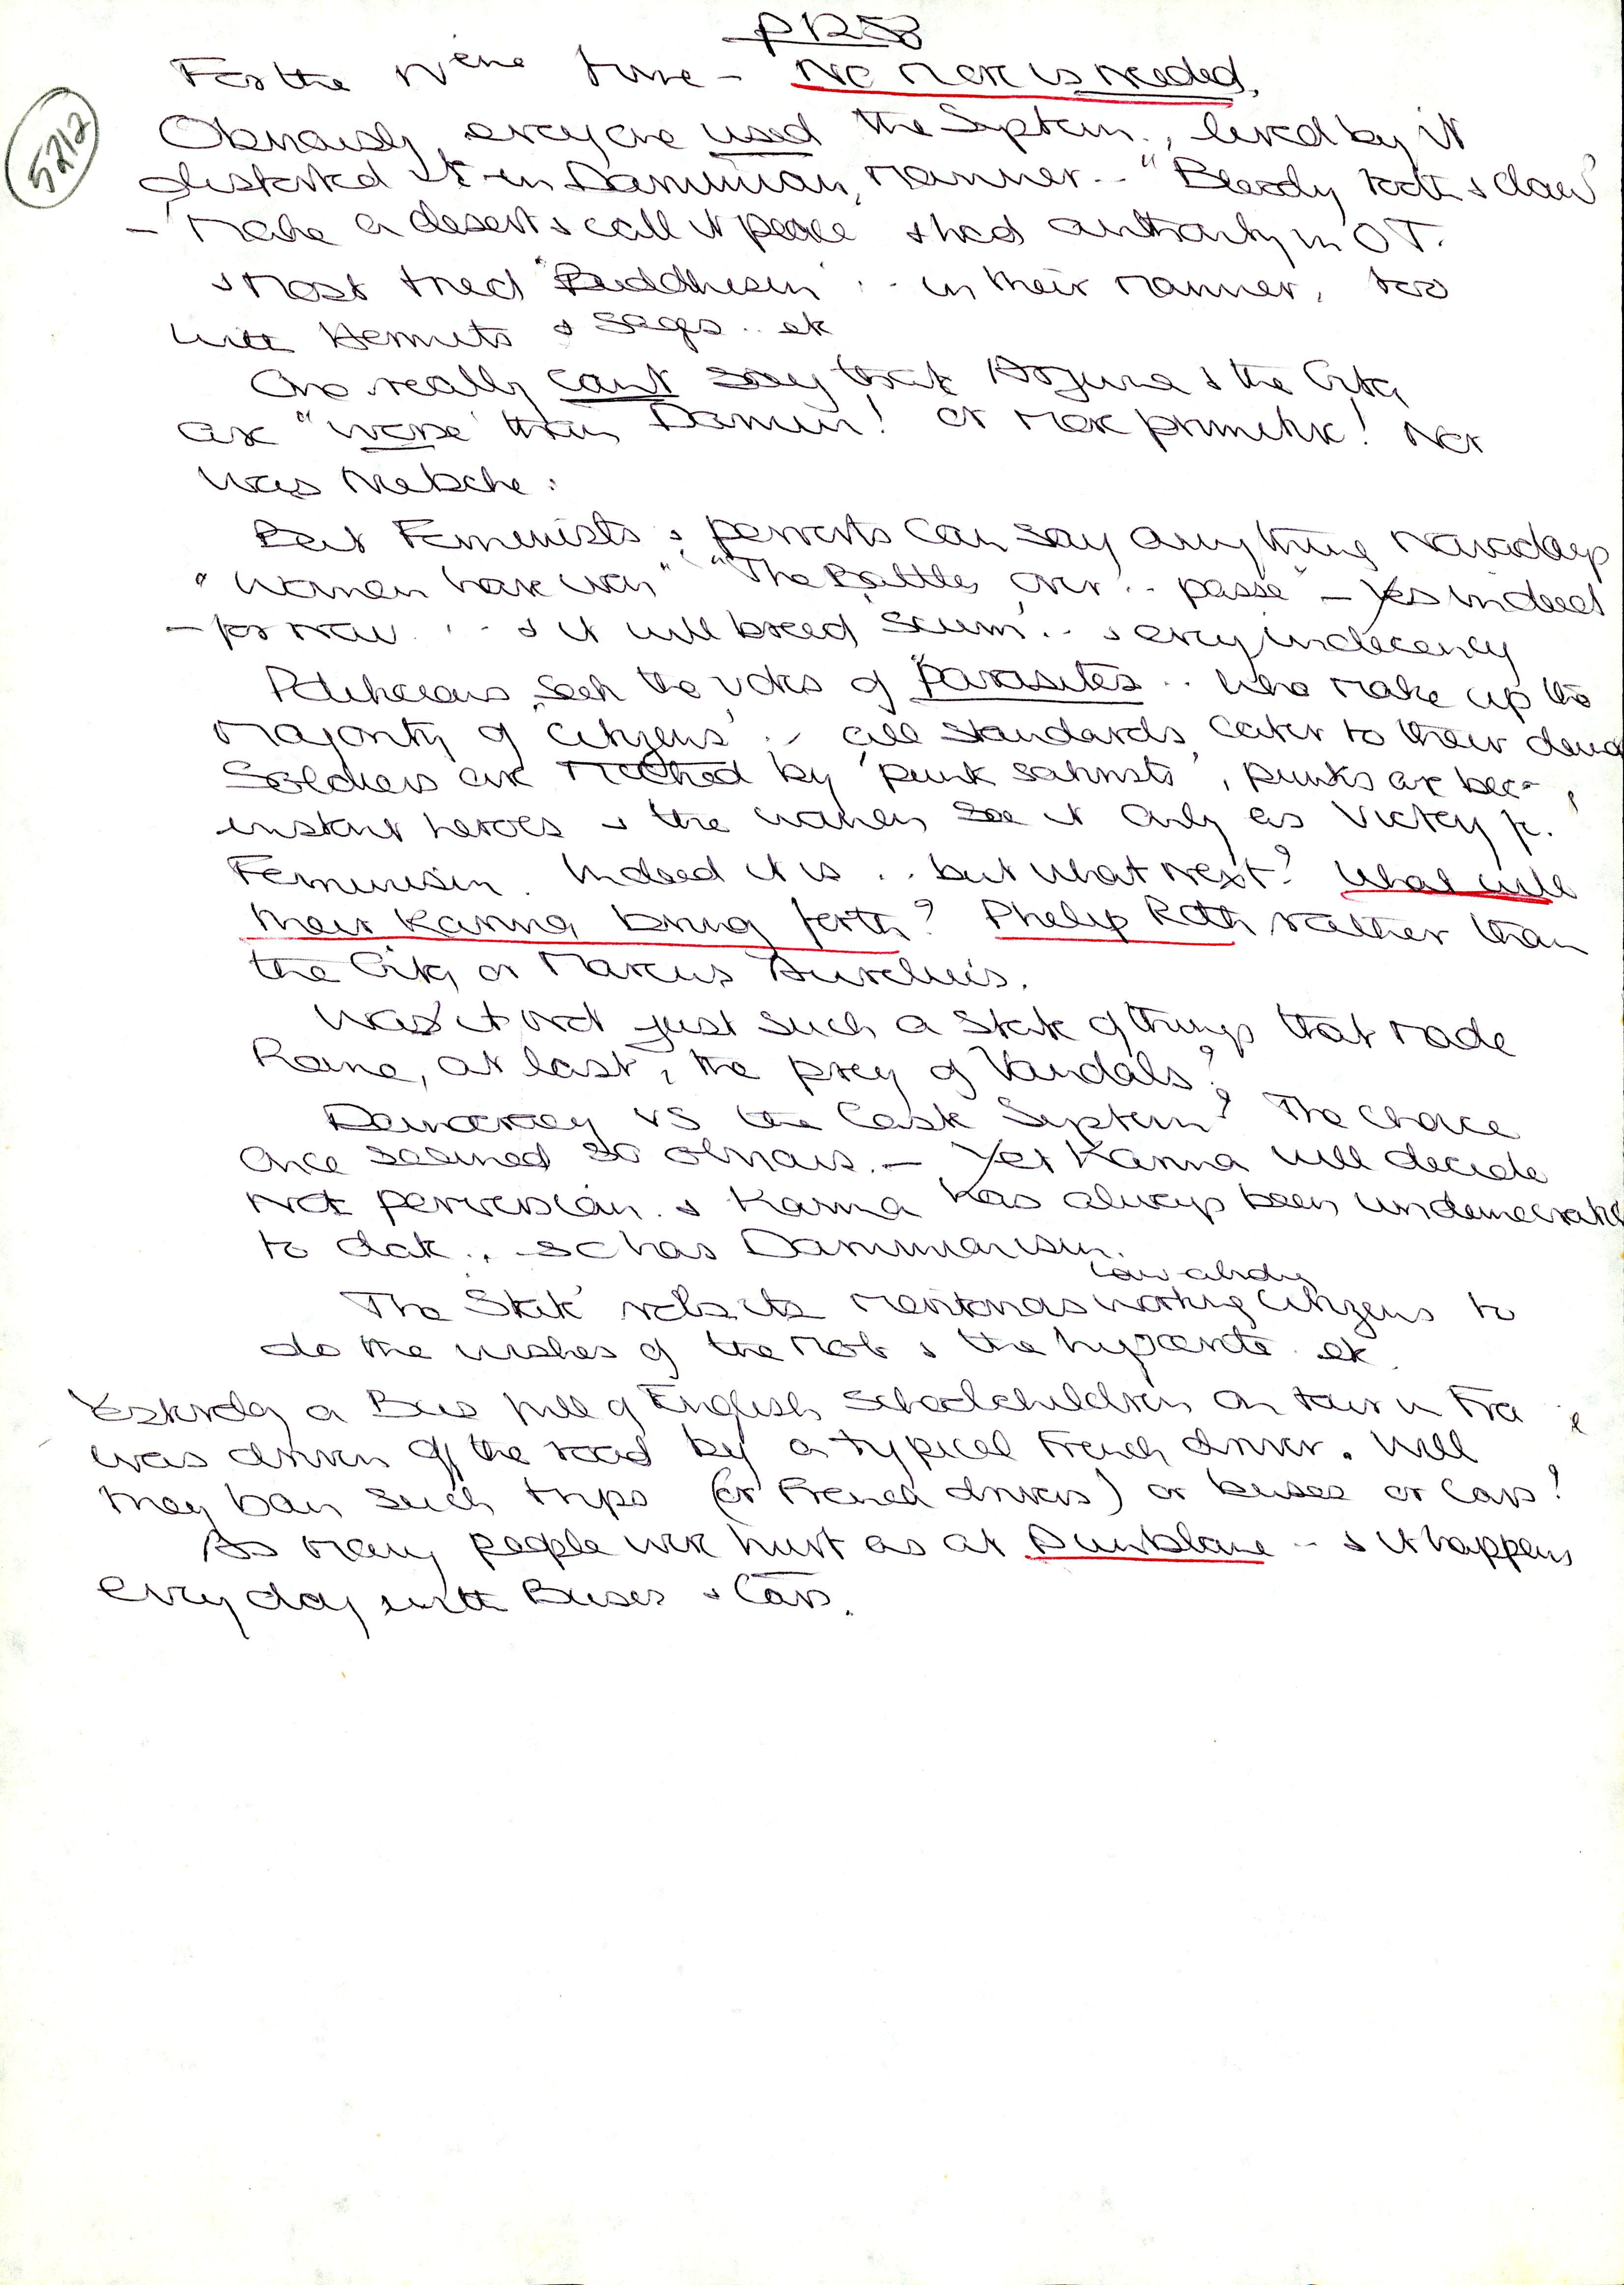 p1258
5212
For the Nene time – No More is needed.
Obviously everyone used the System., lived by it
distorted it in Darwinian, manner.. – "Bloody tooth & claw"
– 'Make a desert & call it peace' & had authority in O T.
& Most tried "Buddhism" .. in their manner, too
with Hermits & Sages .. etc
One really can't say that Arjuna & the Gita
are "worse" than Darwin! or More primitive! Nor
was Nietsche.
But Feminists & perverts can say anything Nowadays
"Women have won" "The Battles over .. passé" – Yes indeed
– for now ... & it will breed 'scum' .. & every indecency
Politicians seek the votes of "parasites .. who make up the
Majority of 'Citizens' .. all standards cater to their
Soldiers are Mocked by 'punk satirists', punks are
instant heroes & the women see it only as Victory f.
Feminism. Indeed it is .. but what Next? What will
their Karma bring forth? Philip Roth rather than
the Gita or Marcus Aurelius.
Was it not just such a state of things that made
Rome, at last, the prey of Vandals?
Democracy vs the Caste System? The choice
Once seemed so obvious. – Yet Karma will decide
Not perversion. & Karma has always been undemocratic
to date .. so has Darwinianism.
law abidg
The 'State' robs its Meritorious working Citizens to
do the wishes of the Mob & the hypocrite. etc.
Yesterday a Bus full of English schoolchildren on tour in Fra
was driven off the road by a typical French driver. Will
they ban such trips (or French drivers) or buses or Cars?
As many people were hurt as at Dunblane – & it happens
every day with Buses & Cars.